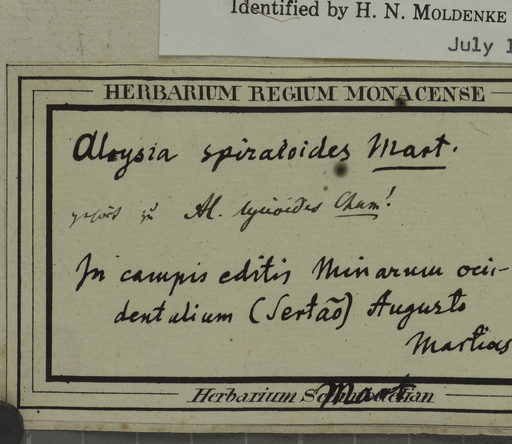 Identified by H. N. MOLDENKE
July 1
HERBARIUM REGIUM MONACENSE
Aloysia spiraeoides Mart.
gehört zu Al. lycioides Cham!
In campis editis Minarum occi-
dentalium (Sertão) Augusto
Martius
Herbarium Mart